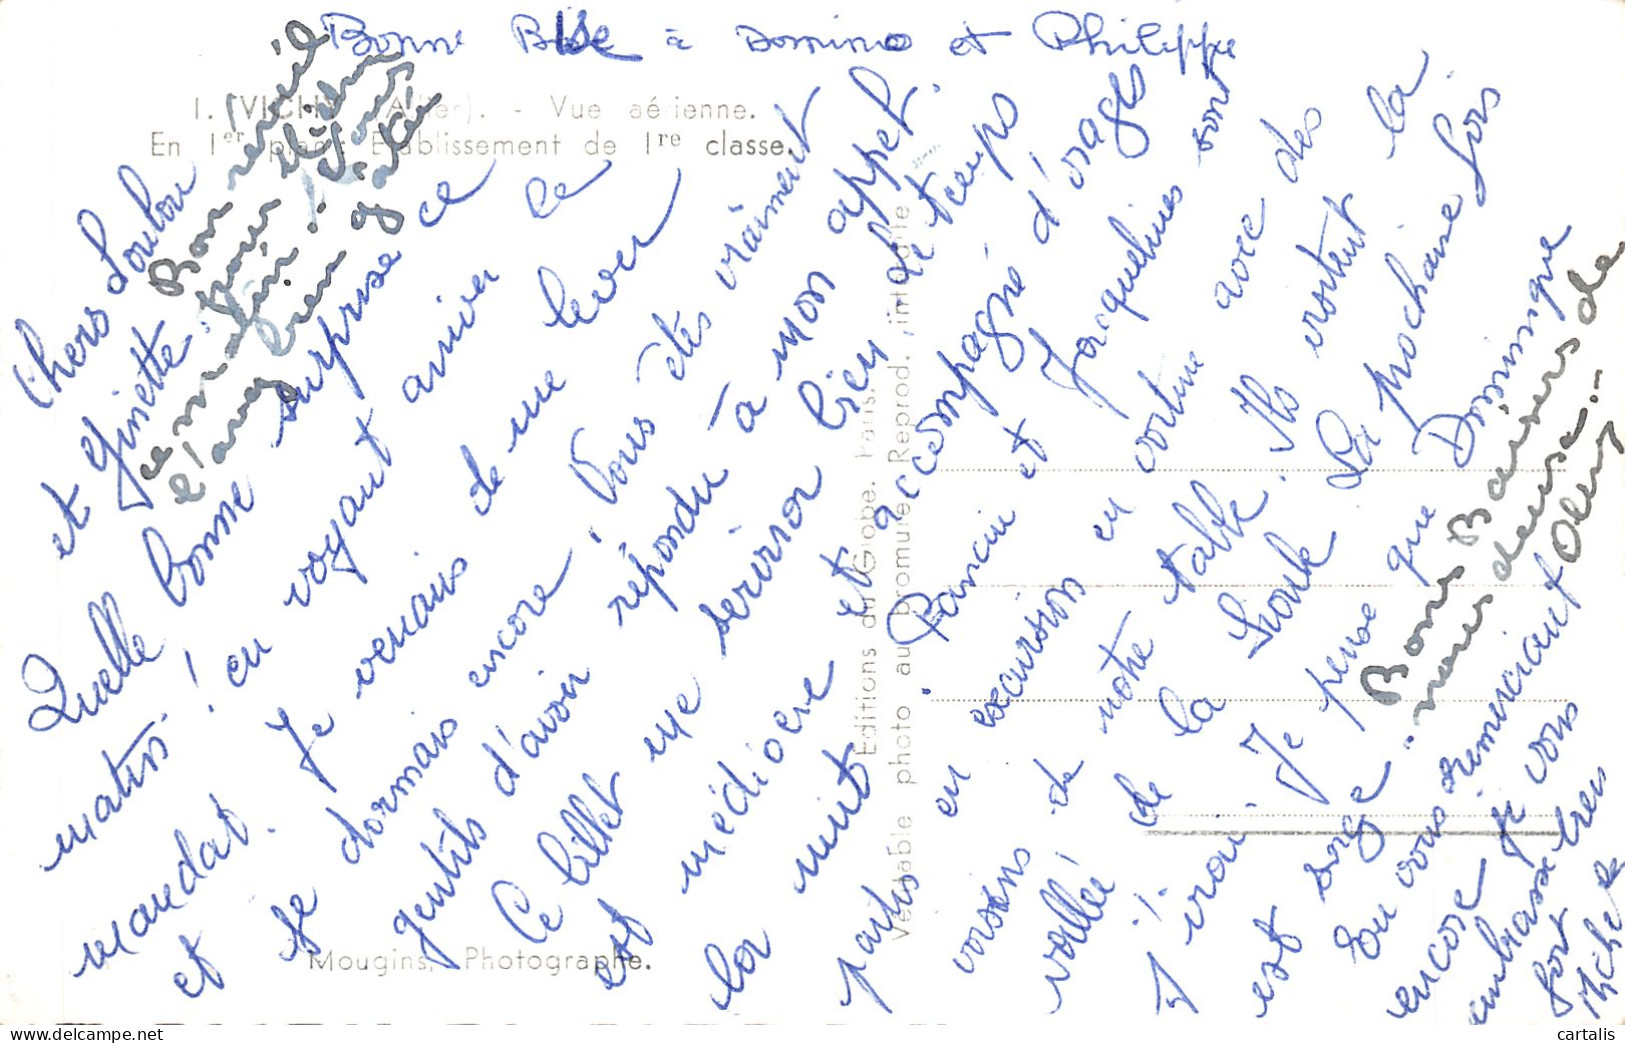 Bonne Bise à Domino et Philippe
1. (VICHY (Allier). - Vue aérienne.
En 1er plan: Etablissement de 1re classe.
Chers Loulou
et Ginette.
Quelle bonne surprise ce
matin ! en voyant arriver le
mandat. Je venais de me lever
et je dormais encore, Vous êtes vraiment
gentils d'avoir répondu à mon appel.
Ce billet me servira bien le temps
est médiocre et accompagné d'orages
la nuit Pancin et Jacquelines sont
partis en excursion en voiture avec des
voisins de notre table. Ils visitent la
vallée de la Sioule La prochaine fois
j'irai. Je pense que Dominique
est sage
En vous remerciant
encore je vous
embrasse très
fort
Michele
Bon réveil
ce matin
l'avez bien
Bons Baisers de
nous deux...
Editions du Globe. Paris.
Véritable photo au bromure. Reprod. interdite
Mougins, Photographe.
cartalis